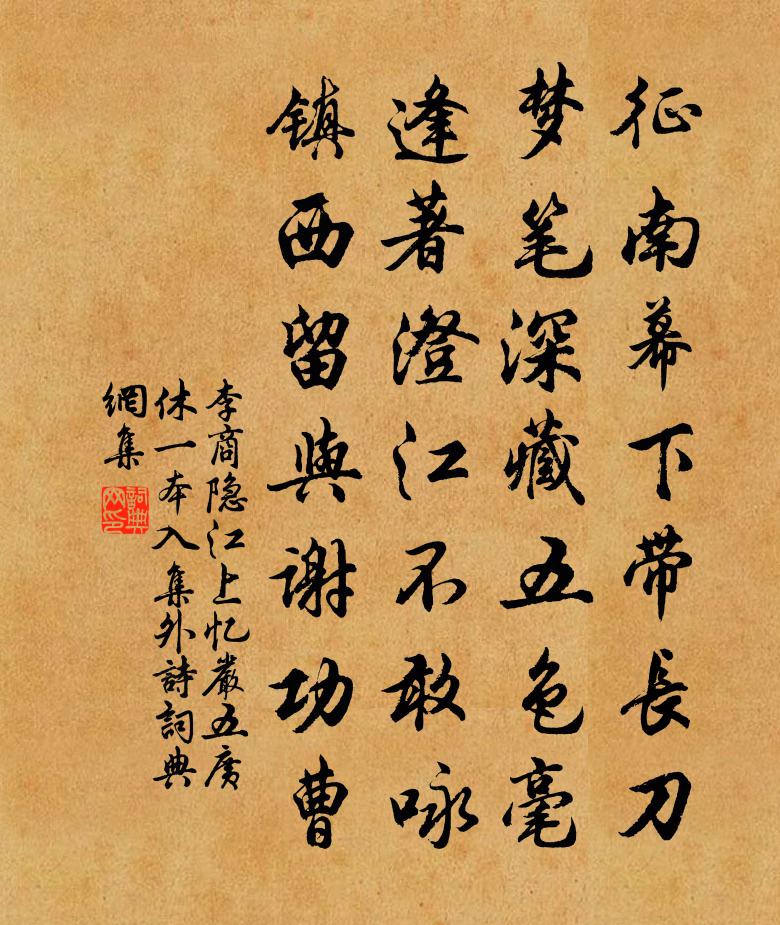 征南幕下带長刀
梦笔深藏五色毫
逢著澄江不敢咏
镇西留與谢功曹
李商隐江上忆嚴五廣
休一本入集外詩詞典
網集
詞典
网印